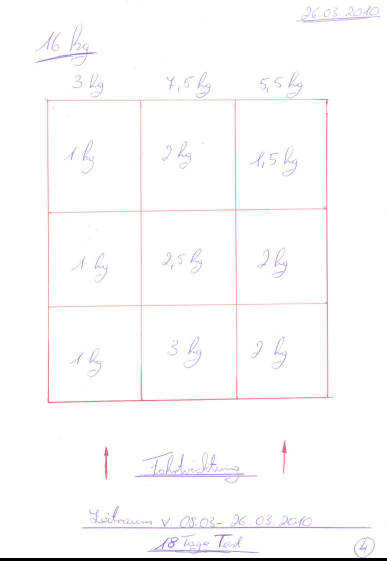 26.03.2010
16 kg
3 kg 7,5 kg 5,5 kg
1 kg 2 kg 1,5 kg
1 kg 2,5 kg 2 kg
1 kg 3 kg 2 kg
Fahrtrichtung
Zeitraum v. 08.03 - 26.03.2010
18 Tage Test
4